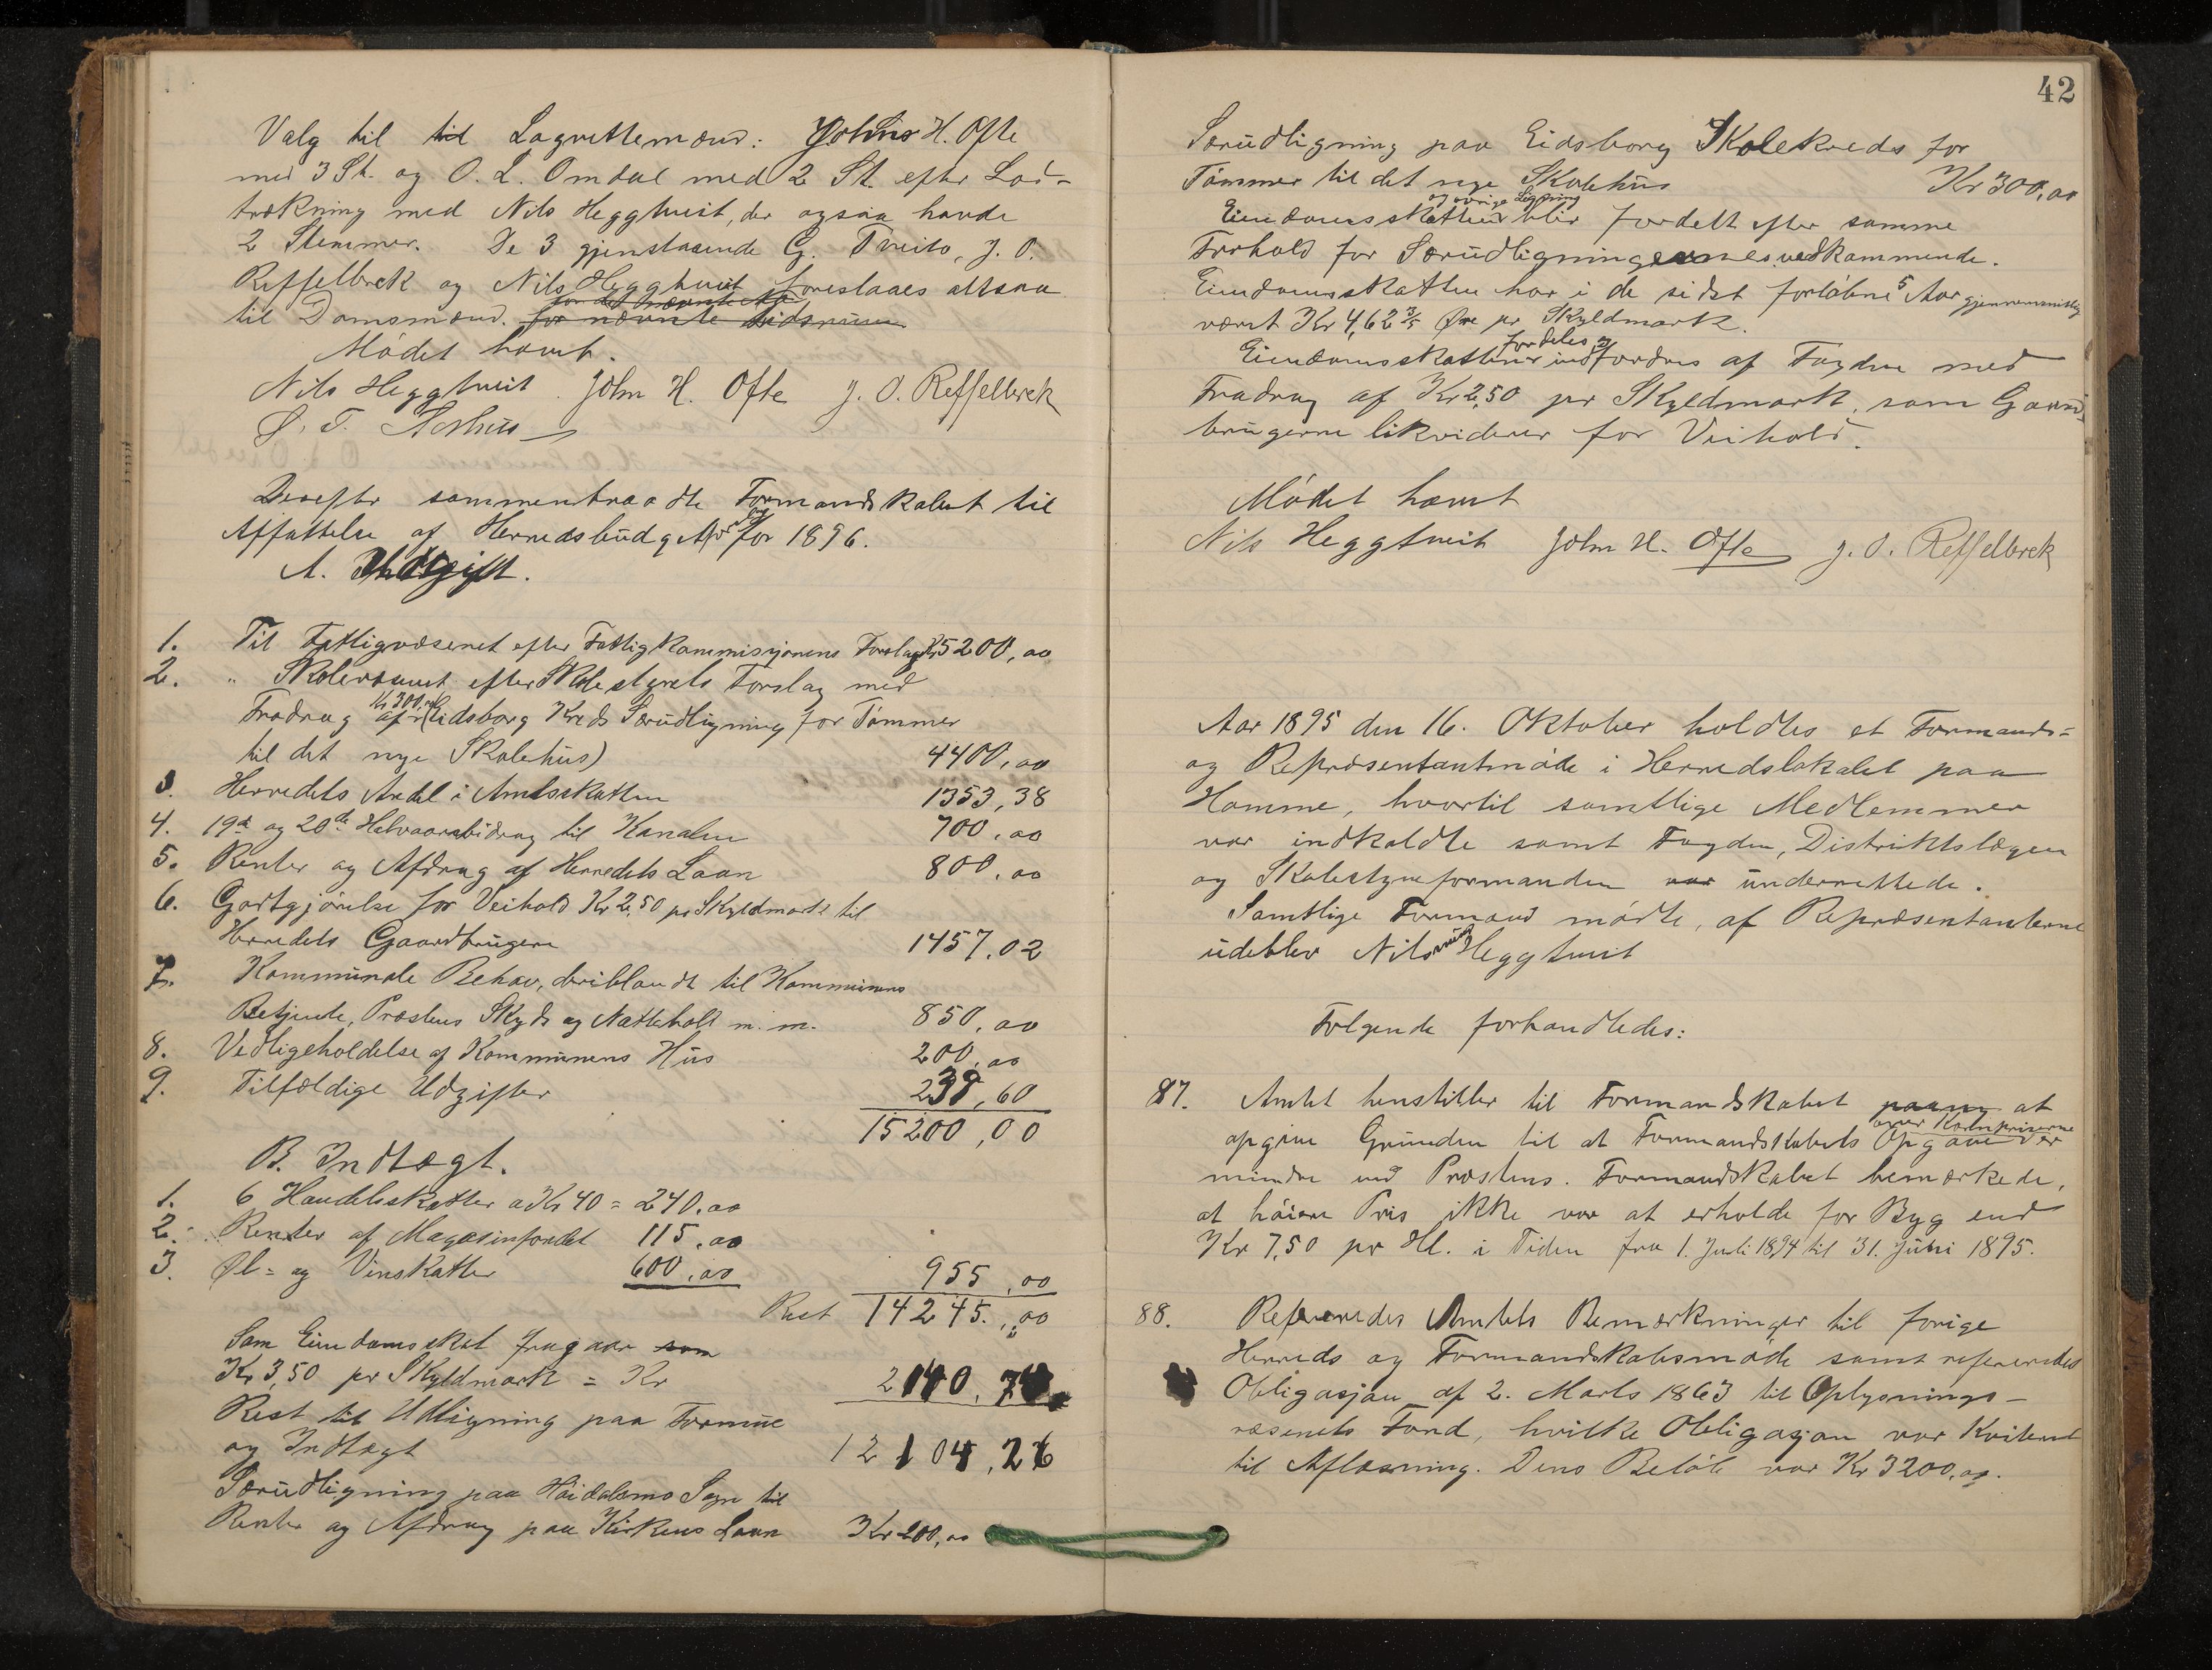 Valg til til Lagrettemænd: John H. Ofte
med 3 St. og O. L. Omdal med 2 St. efter Lod-
trækning med Nils Heggtveit, der ogsaa havde
2 Stemmer. De 3 gjenstaaende G. Tveito, J. O.
Reffelbrek og Nils Heggtveit foreslaaes altsaa
for det nævnte
til Domsmænd. for nævnte tidsrum
Mødet hævet.
Nils Heggtveit John H. Ofte J. O. Reffelbrek
Derefter sammentraadte Formandskabet til
Affattelse af Herredsbudget for 1896.
A. Udgift.
1. Til Fattigvæsenet efter Fattigkommisjonens Forslag Kr 5200,00
2. " Skolevæsenet efter Skolestyrets Forslag med
Kr 300
Fradrag af (Eidsborg Kreds Særudligning for Tømmer
til det nye Skolehus) 4400,00
3. Herredets Andel i Amtsskatten 1353,38
4. 19de og 20de Halvaarsbidrag til Kanalen 700,00
5. Renter og Afdrag af Herredets Laan 800,00
6. Godtgjørelse for Veihold Kr 2,50 pr Skyldmark til
Herredets Gaardbrugere 1457,02
7. Kommunale Behov, deriblandt til Kommunens
Betjente, Præstens Skyds og Nattehold m. m. 850,00
8. Vedligeholdelse af Kommunens Hus 200,00
9. Tilfældige Udgifter 239,60
15200,00
B. Indtægt.
1. 6 Handelsskatter a Kr 40 = 240,00
2. Renter af Magasinfondet 115,00
3. Øl- og Vinskatter 600,00 955,00
Rest 14245,00
Som Eiendomsskat fragaar som
Kr 3,50 pr Skyldmark = Kr 2140,74
Rest til Udligning paa Formue
og Indtægt 12104,26
Særudligning paa Høidalsmo Sogn til
Renter og Afdrag paa Kirkens Laan Kr 200,00
42
Særudligning paa Eidsborg Skolekreds for
Tømmer til det nye Skolehus Kr 300,00
og øvrige Ligning
Eiendomsskatten blir fordelt efter samme
Forhold for Særudligningernes vedkommende.
Eiendomsskatten har i de sidst forløbne 5 Aar gjennemsnitlig
været Kr 4,62 3/5 Øre pr Skyldmark.
fordeles og
Eiendomsskatten indfordres af Fogden med
Fradrag af Kr 2,50 pr Skyldmark, som Gaard-
brugerne likviderer for Veihold.
Mødet hævet
Nils Heggtveit John H. Ofte J. O. Reffelbrek
Aar 1895 den 16. Oktober holdtes et Formands-
og Repræsentantmøde i Herredslokalet paa
Homme, hvortil samtlige Medlemmer
var indkaldte samt Fogden, Distriktslægen
og Skolestyreformanden var underrettede.
Samtlige Formænd mødte, af Repræsentanterne
udeblev Nils Heggtveit
Følgende forhandledes:
87. Amtet henstiller til Formandskabet paany at
over Kornpriserne
opgive Grunden til at Formandskabets Opgave er
mindre end Præstens. Formandskabet bemærkede,
at høiere Pris ikke var at erholde for Byg end
Kr 7,50 pr Hl. i Tiden fra 1. Juli 1894 til 31. Juni 1895.
88. Refereredes Amtets Bemærkninger til forige
Herreds og Formandskabsmøde samt refereredes
Obligasjon af 2. Marts 1863 til Oplysnings-
væsenets Fond, hvilke Obligasjon var kviteret
til Aflæsning. Dens Beløb var Kr 3200,00.